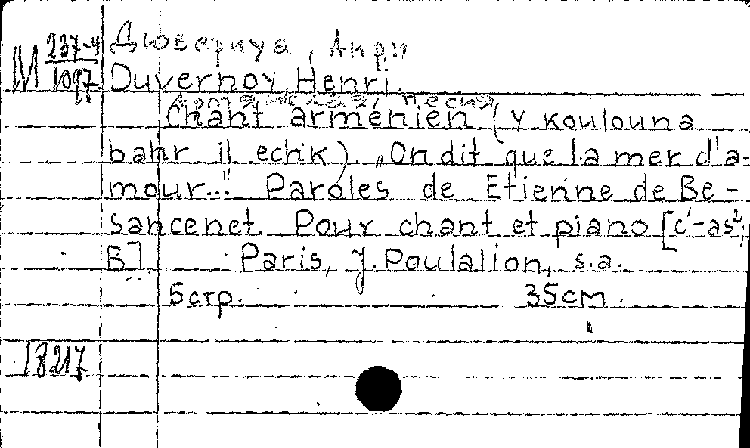 M 237-4
1097
Дювернуа, Анри
Duvernoy Henri.
Армянская песня
Chant arménien (y koulouna
bahr il echk). „On dit que la mer d'a-
mour..." Paroles de Etienne de Be-
sancenet. Pour chant et piano [c'-as²;
B]. Paris, J. Poulalion, s.a.
5 стр. 35 см.
18217